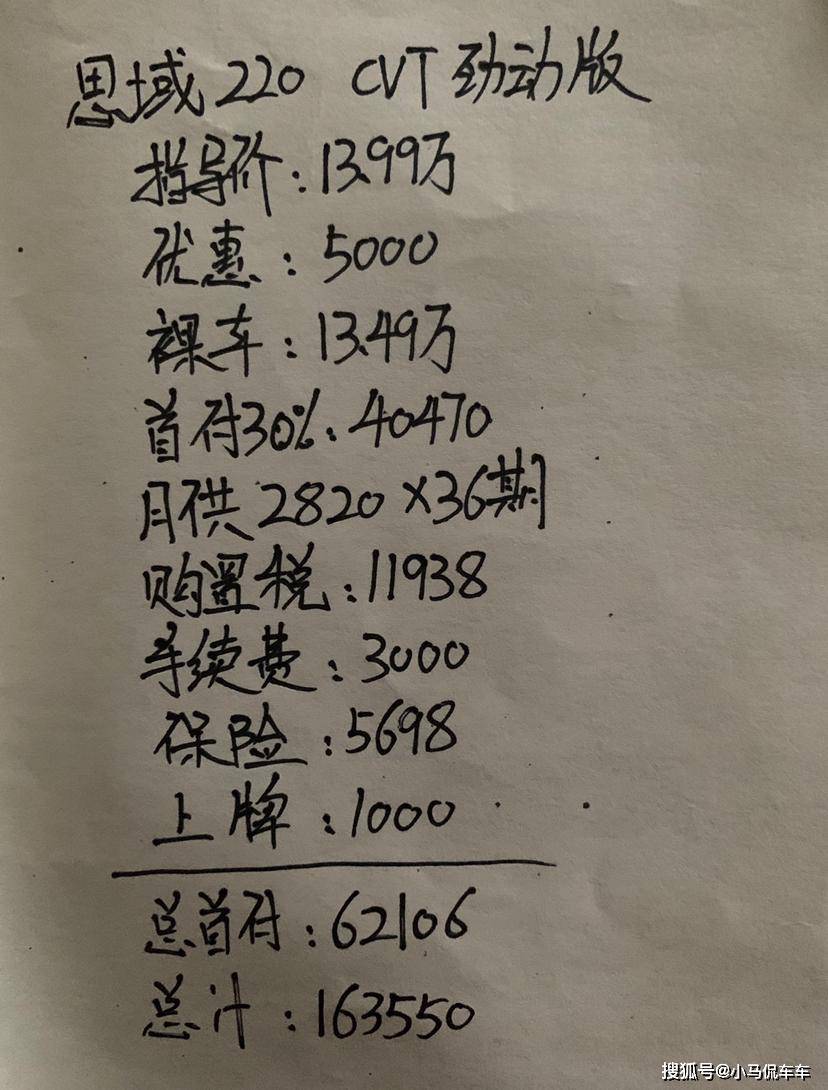 思域220 CVT劲动版
指导价:13.99万
优惠:5000
裸车:13.49万
首付30%:40470
月供2820×36期
购置税:11938
手续费:3000
保险:5698
上牌:1000
总首付:62106
总计:163550
搜狐号@小马侃车车